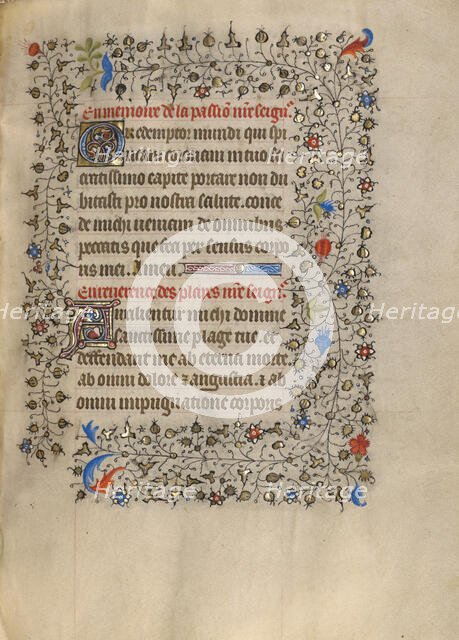 En memoire de la passiō nr̄e seignr̄
O redemptor mundi qui spi
neam coronam in tuo sa
cratissimo capite portare non du
bitasti pro nostra salute. conce
de michi veniam de omnibus
peccatis que feci per sensus corpo
ris mei. Amen.
En reverence des playes nr̄e seignr̄
Auxilientur michi domine
sanctissime plage tue. et
deffendant me ab eterna morte
ab omni dolore & angustia. & ab
omni impugnatione corporis
Heritage